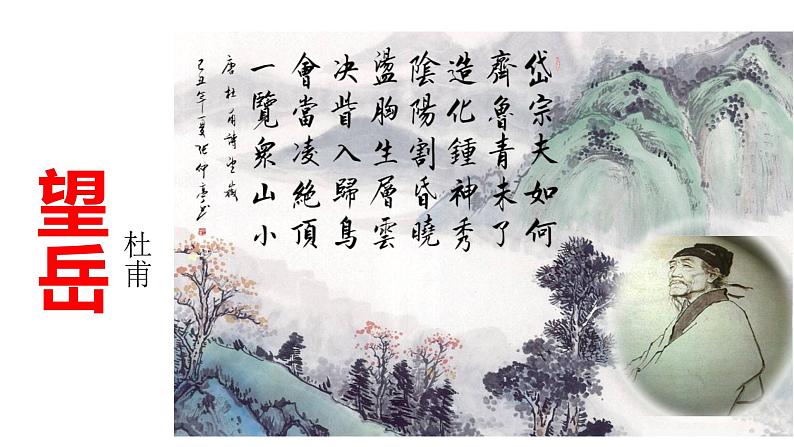 望岳
杜甫
岱宗夫如何
齊魯青未了
造化鍾神秀
陰陽割昏曉
盪胸生層雲
决眥入歸鳥
會當凌絶頂
一覽衆山小
唐杜甫詩望嶽
己丑年夏